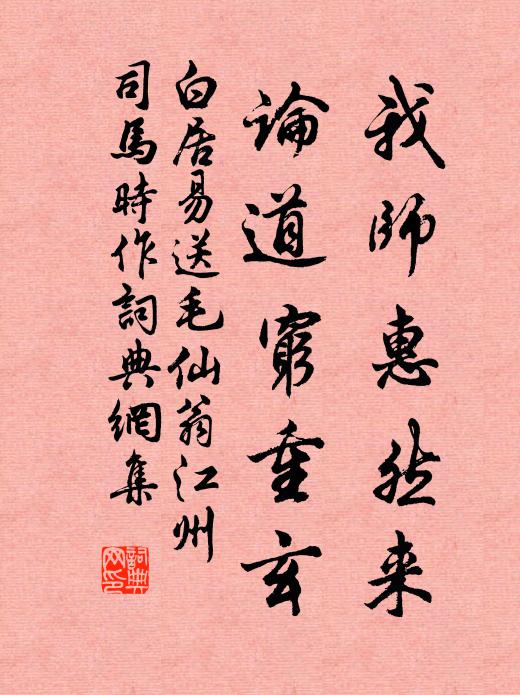 我師惠然来
論道窮重玄
白居易送毛仙翁江州
司馬時作詞典網集
詞典网印